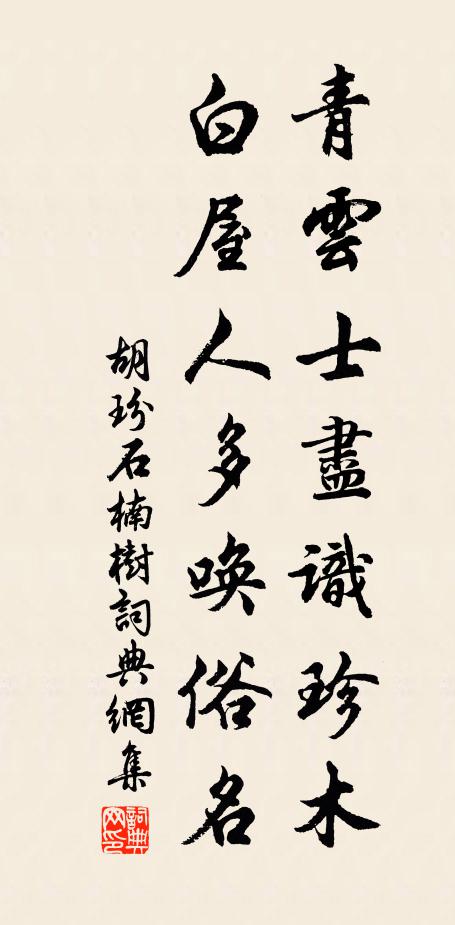 青雲士盡識珍木
白屋人多喚俗名
胡玢石楠樹詞典網集
詞典网印